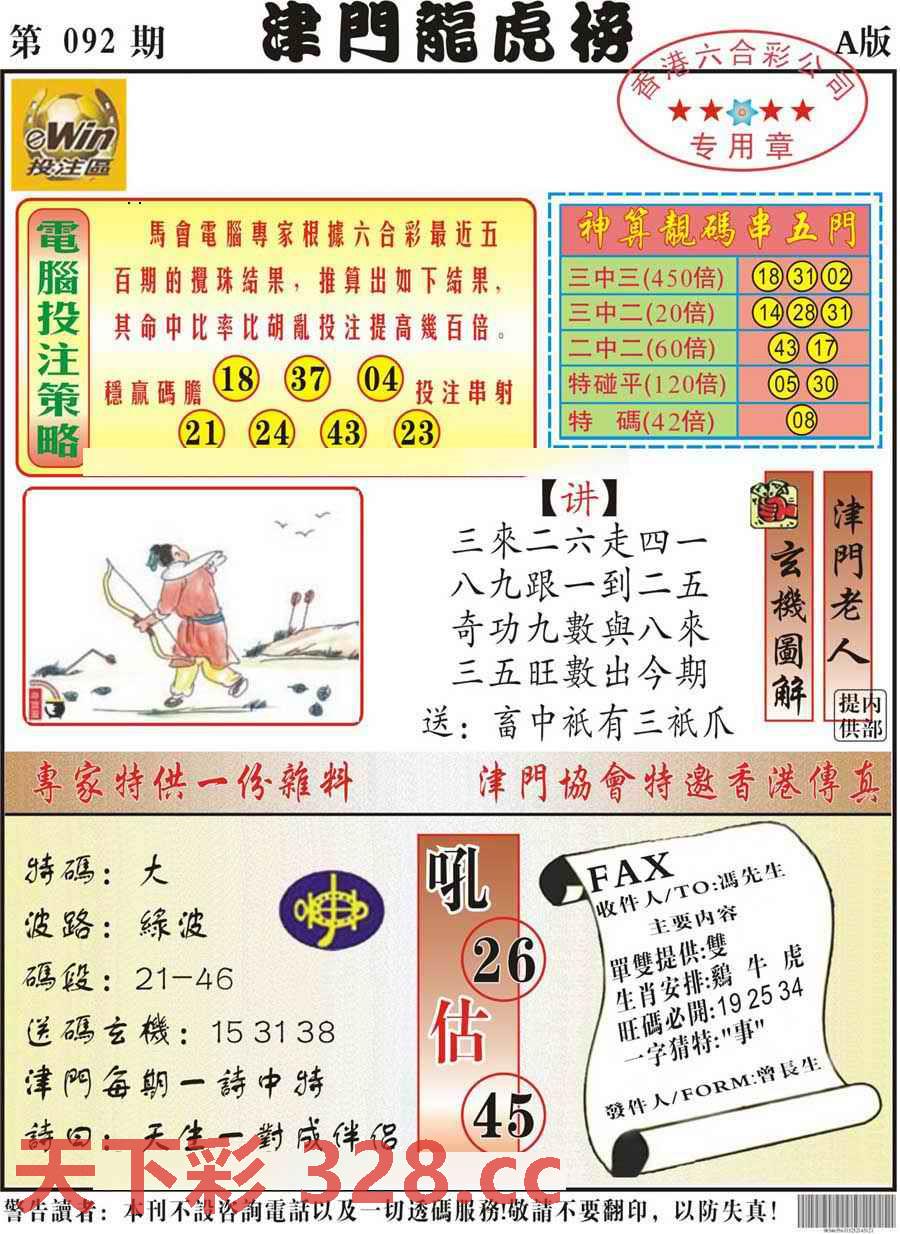 第 092 期
津門龍虎榜
A版
香港六合彩公司
专用章
eWin
投注區
電腦投注策略
馬會電腦專家根據六合彩最近五
百期的攪珠結果，推算出如下結果，
其命中比率比胡亂投注提高幾百倍。
穩贏碼膽 18 37 04 投注串射
21 24 43 23
神算靚碼串五門
三中三(450倍) 18 31 02
三中二(20倍) 14 28 31
二中二(60倍) 43 17
特碰平(120倍) 05 30
特 碼(42倍) 08
【讲】
三來二六走四一
八九跟一到二五
奇功九數與八來
三五旺數出今期
送：畜中祇有三祇爪
玄機圖解
津門老人
内部提供
專家特供一份雜料
津門協會特邀香港傳真
特碼：大
波路：綠波
碼段：21-46
送碼玄機：15 31 38
津門每期一詩中特
詩曰：天生一對成伴侶
吼
26
估
45
FAX
收件人/TO:馮先生
主要内容
單雙提供:雙
生肖安排:鷄 牛 虎
旺碼必開:19 25 34
一字猜特:"事"
發件人/FORM:曾長生
天下彩 328.cc
警告讀者：本刊不設咨詢電話以及一切透碼服務!敬請不要翻印，以防失真！